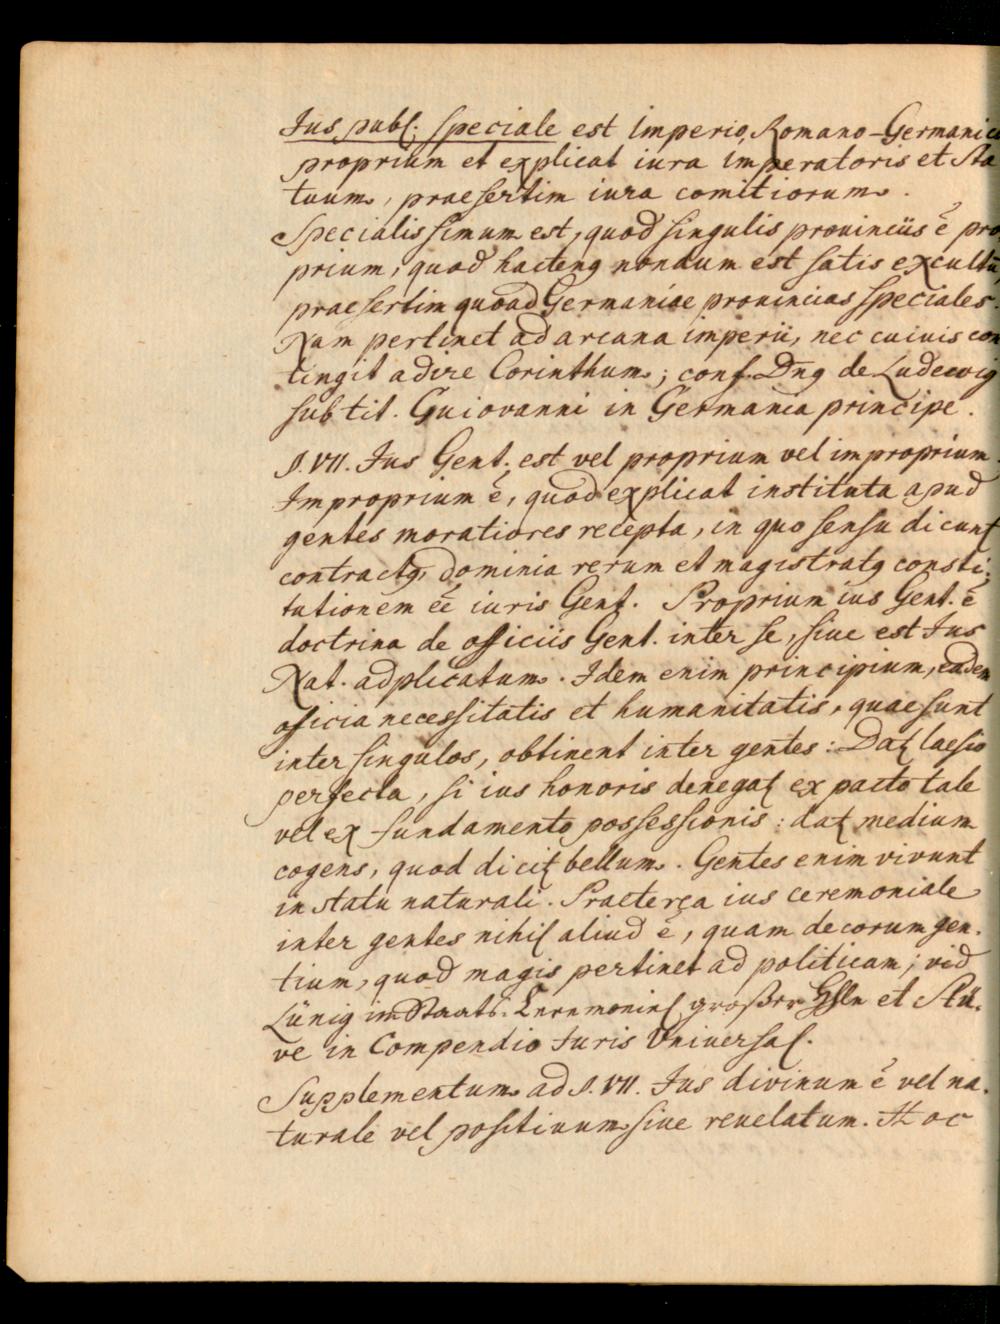 Jus publ. speciale est Imperio Romano-Germanico
proprium et explicat iura imperatoris et sta
tuum, praesertim iura comitiorum.
Specialissimum est, quod singulis prouinciis ē pro
prium, quod hactenq nondum est satis excultū,
praesertim quoad Germaniae prouincias speciales.
Nam pertinet ad arcana imperii, nec cuiuis con
tingit adire Corinthum; conf. Dnq de Ludewig
sub tit. Guiovanni in Germania principe.
§. VII. Jus Gent. est vel proprium vel improprium.
Improprium ē, quod explicat instituta apud
gentes moratiores recepta, in quo sensu dicunt
contractq, dominia rerum et magistratq consti:
tutionem eē iuris Gent. Proprium ius Gent. ē
doctrina de officiis Gent. inter se, siue est Jus
Nat. adplicatum. Idem enim principium, eadem
officia necessitatis et humanitatis, quae sunt
inter singulos, obtinent inter gentes: Dat laesio
perfecta, si ius honoris denegat ex pacto tale
vel ex fundamento possessionis: dat medium
cogens, quod dicit bellum. Gentes enim vivunt
in statu naturali. Praeterea ius ceremoniale
inter gentes nihil aliud ē, quam decorum gen.
tium, quod magis pertinet ad politicam; vid
Lünig im Staats. Ceremoniel großer et Stü.
ve in Compendio Juris Vniversal.
Supplementum ad §. VII. Jus divinum ē vel na.
turale vel positiuum siue reuelatum. Hoc